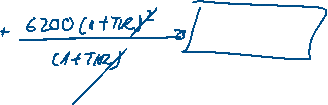 + 6200 (1+TIR)²
(1+TIR)